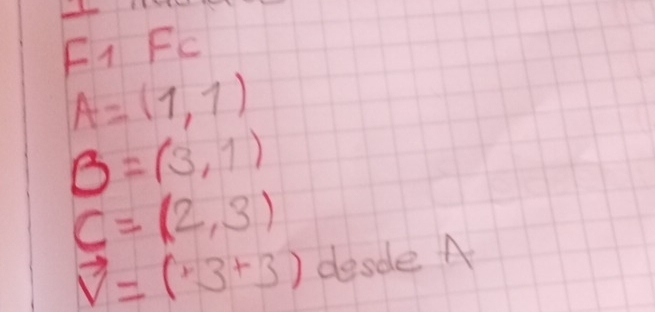 F1 Fc
A = (1, 1)
B = (3, 1)
C = (2, 3)
V⃗ = (+3+3) desde A